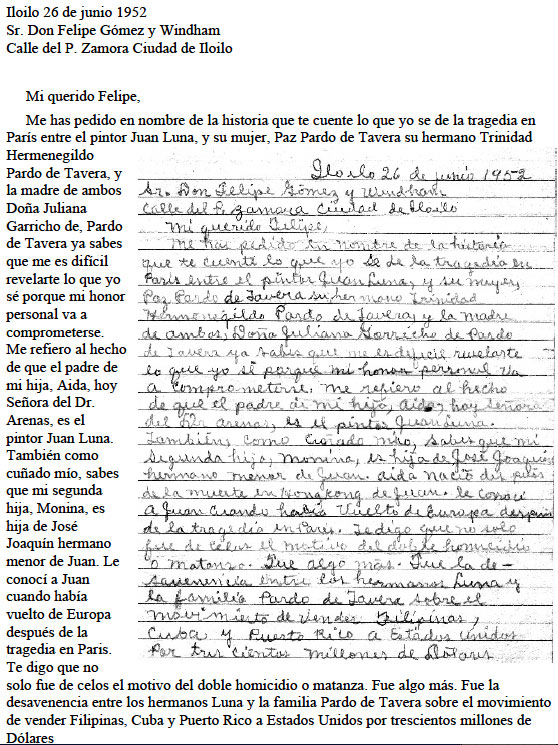 Iloilo 26 de junio 1952
Sr. Don Felipe Gómez y Windham
Calle del P. Zamora Ciudad de Iloilo
Mi querido Felipe,
Me has pedido en nombre de la historia que te cuente lo que yo se de la tragedia en
París entre el pintor Juan Luna, y su mujer, Paz Pardo de Tavera su hermano Trinidad
Hermenegildo
Pardo de Tavera, y
la madre de ambos
Doña Juliana
Garricho de, Pardo
de Tavera ya sabes
que me es difícil
revelarte lo que yo
sé porque mi honor
personal va a
comprometerse.
Me refiero al hecho
de que el padre de
mi hija, Aida, hoy
Señora del Dr.
Arenas, es el
pintor Juan Luna.
También como
cuñado mío, sabes
que mi segunda
hija, Monina, es
hija de José
Joaquín hermano
menor de Juan. Le
conocí a Juan
cuando había
vuelto de Europa
después de la
tragedia en Paris.
Te digo que no
solo fue de celos el motivo del doble homicidio o matanza. Fue algo más. Fue la
desavenencia entre los hermanos Luna y la familia Pardo de Tavera sobre el movimiento
de vender Filipinas, Cuba y Puerto Rico a Estados Unidos por trescientos millones de
Dólares
Iloilo 26 de junio 1952
Sr. Don Felipe Gómez y Windham
Calle del P. Zamora Ciudad de Iloilo
Mi querido Felipe,
Me has pedido en nombre de la historia
que te cuente lo que yo se de la tragedia en
Paris entre el pintor Juan Luna, y su mujer,
Paz Pardo de Tavera su hermano Trinidad
Hermenegildo Pardo de Tavera, y la madre
de ambos, Doña Juliana Gorricho de Pardo
de Tavera ya sabes que me es dificil revelarte
lo que yo sé porque mi honor personal va
a comprometerse. Me refiero al hecho
de que el padre de mi hija, Aida, hoy señora
del Dr. Arenas, es el pintor Juan Luna.
También, como cuñado mio, sabes que mi
segunda hija, Monina, es hija de José Joaquin
hermano menor de Juan. Aida nació después
de la muerte en Hongkong de Juan. Le conocí
a Juan cuando habia vuelto de Europa despues
de la tragedia en Paris. Te digo que no solo
fue de celos el motivo del doble homicidio
o matanza. Fue algo más. Fue la de-
savenencia entre los hermanos Luna y
la familia Pardo de Tavera sobre el
movimiento de vender Filipinas,
Cuba y Puerto Rico a Estados Unidos
Por tres cientos millones de Dólares